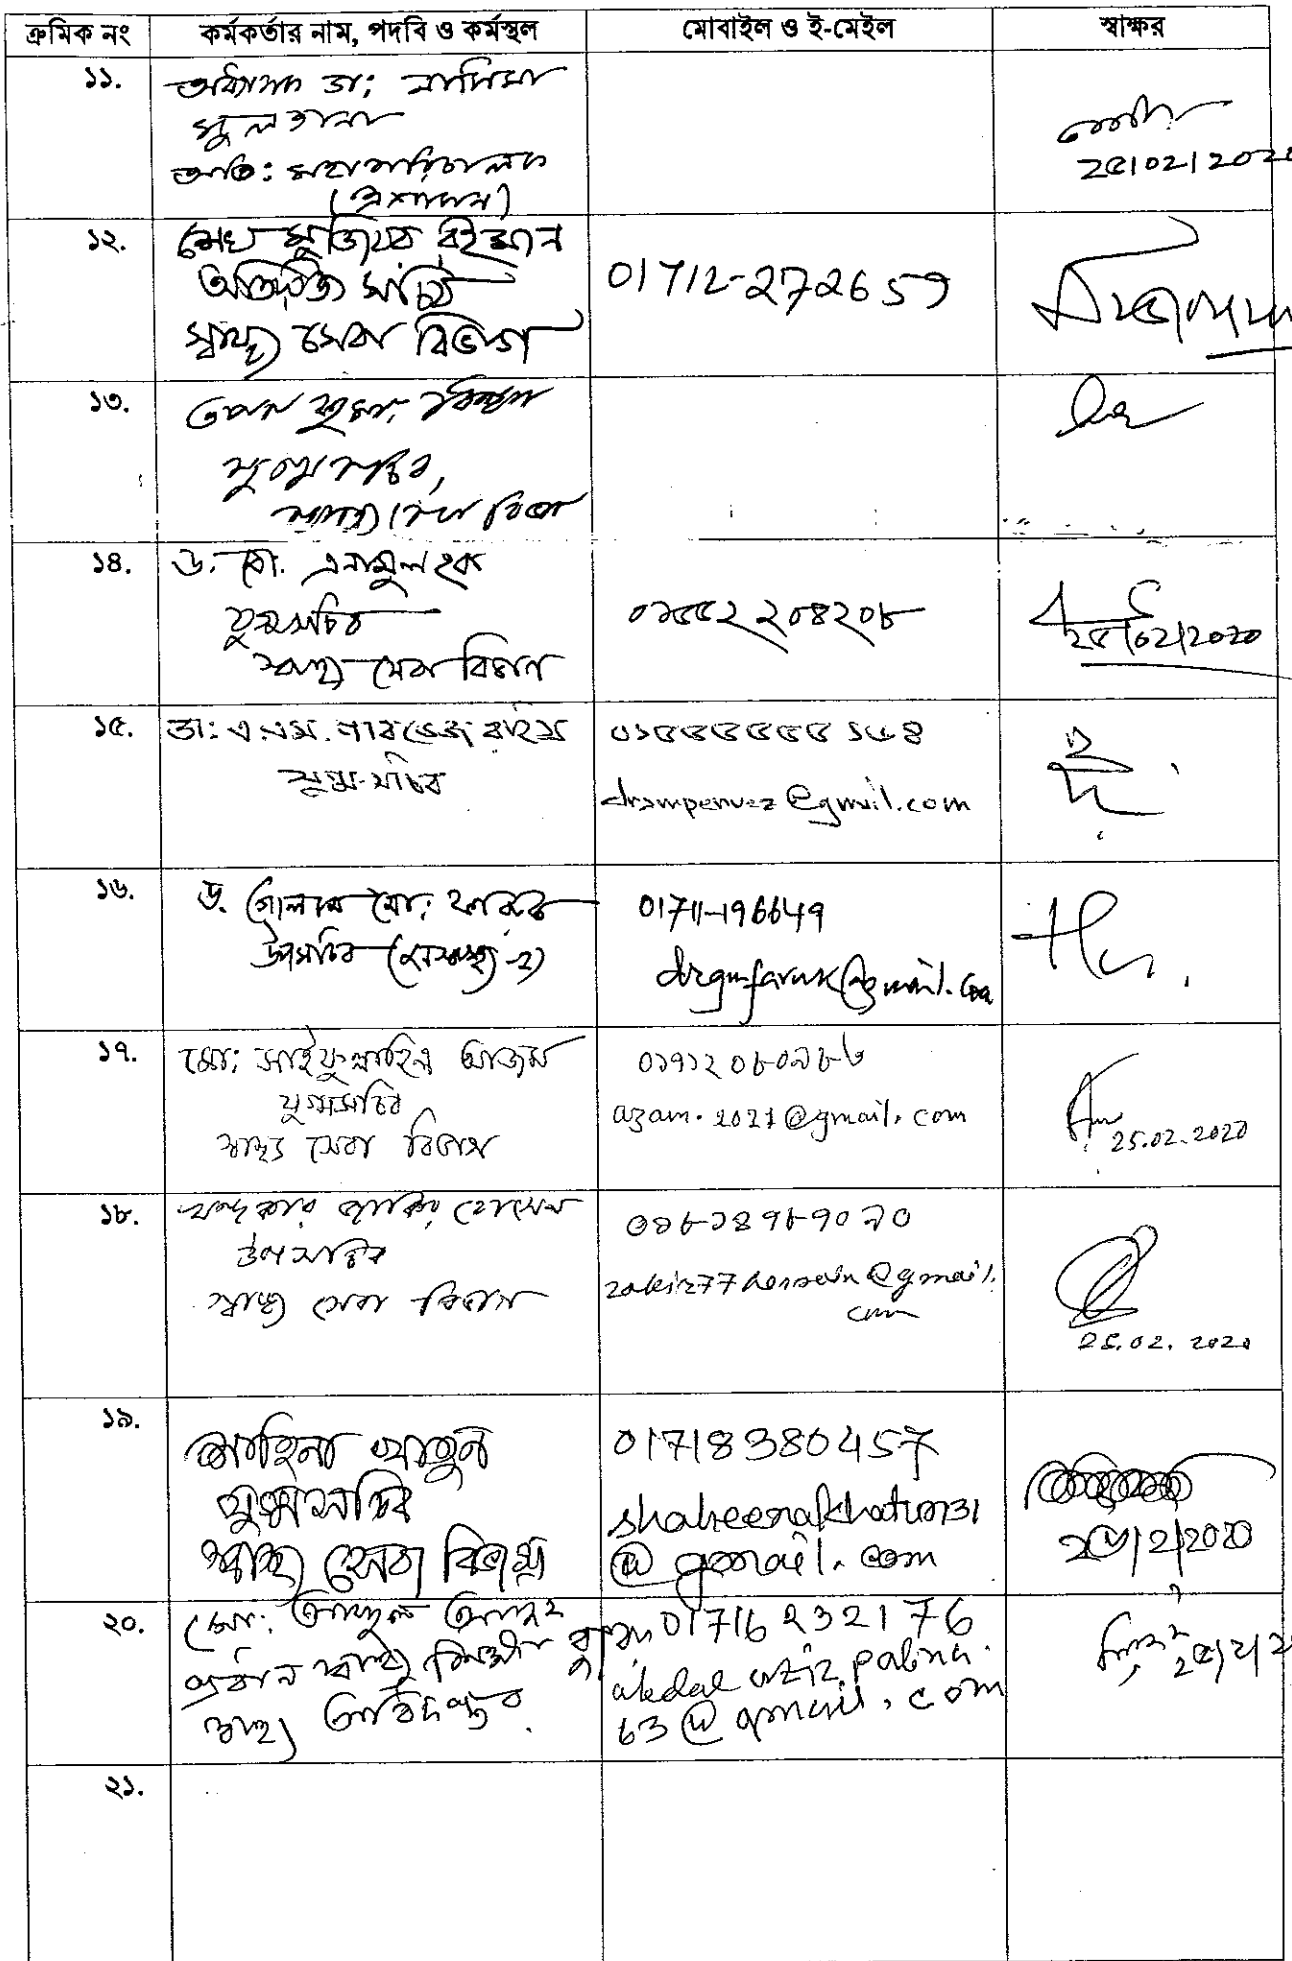 ক্রমিক নং কর্মকর্তার নাম, পদবি ও কর্মস্থল মোবাইল ও ই-মেইল স্বাক্ষর
১১. অধ্যাপক ডা: নাসিমা
সুলতানা
অতি: মহাপরিচালক
(প্রশাসন)
25/02/202
১২. শেখ মুজিবর রহমান
অতিরিক্ত সচিব
স্বাস্থ্য সেবা বিভাগ
01712-272659
১৩. তপন কুমার বিশ্বাস
যুগ্মসচিব,
স্বাস্থ্য সেবা বিভাগ
১৪. ড. মো. এনামুল হক
যুগ্মসচিব
স্বাস্থ্য সেবা বিভাগ
০১৫৫২২০৪২০৮
২৫/02/2020
১৫. ডা: এ.এম. পারভেজ রহিম
যুগ্ম-সচিব
drampervez@gmail.com
১৬. ড. গোলাম মো: ফারুক
উপসচিব
01711-196649
drgmfaruk@gmail.com
১৭. মো: সাইফুল্লাহিল আজম
যুগ্মসচিব
স্বাস্থ্য সেবা বিভাগ
০১৭১২০৮০৯৮৬
azam.2021@gmail.com
25.02.2020
১৮. খন্দকার জাকির হোসেন
উপসচিব
স্বাস্থ্য সেবা বিভাগ
zakir77hossain@gmail.
com
25.02.2020
১৯. শাহিনা খাতুন
যুগ্মসচিব
স্বাস্থ্য সেবা বিভাগ
01718380457
shaheenakhatun131
@gmail.com
২৫/2/2020
২০. মো: আব্দুল আজিজ
প্রধান স্বাস্থ্য শিক্ষা ব্যুরো
স্বাস্থ্য অধিদপ্তর.
01716232176
abdul aziz.pabna.
63@gmail.com
২৫/২/২
২১.